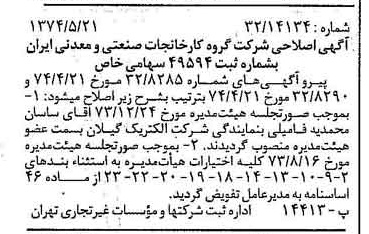 شماره: ۳۲/۱۴۱۳۴ ۱۳۷۴/۵/۲۱
آگهی اصلاحی شرکت گروه کارخانجات صنعتی و معدنی ایران
بشماره ثبت ۴۹۵۹۴ سهامی خاص
پیرو آگهی‌های شماره ۳۲/۸۲۸۵ مورخ ۷۴/۴/۲۱ و
۳۲/۸۲۹۰ مورخ ۷۴/۴/۲۱ بترتیب بشرح زیر اصلاح میشود: ۱-
بموجب صورتجلسه هیئت‌مدیره مورخ ۷۳/۱۲/۲۴ آقای ساسان
محمدید فامیلی بنمایندگی شرکت الکتریک گیلان بسمت عضو
هیئت‌مدیره منصوب گردیدند. ۲- بموجب صورتجلسه هیئت‌مدیره
مورخ ۷۳/۸/۱۶ کلیه اختیارات هیأت‌مدیره به استثناء بندهای
۲-۹-۱۰-۱۳-۱۴-۱۸-۱۹-۲۰-۲۲-۲۳ از ماده ۴۶
اساسنامه به مدیرعامل تفویض گردید.
پ-۱۴۴۱۳ اداره ثبت شرکتها و مؤسسات غیرتجاری تهران